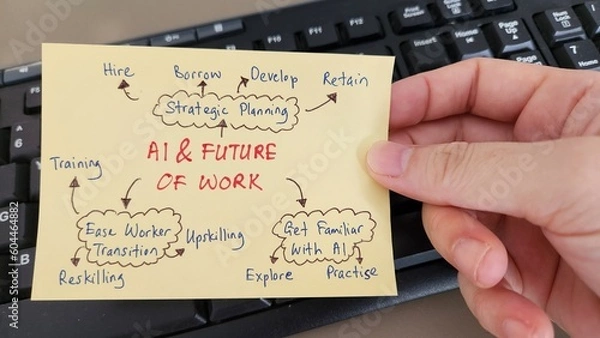 Hire Borrow Develop Retain
Strategic Planning
AI & FUTURE
OF WORK
Training
Ease Worker
Transition
Upskilling
Reskilling
Get Familiar
With AI
Explore Practise
Print Screen
Scroll Lock
Pause Break
F10
F11
F12
Insert
Home
Page Up
Page
Num Lock
7
Home
6
B
Adobe Stock
604464882